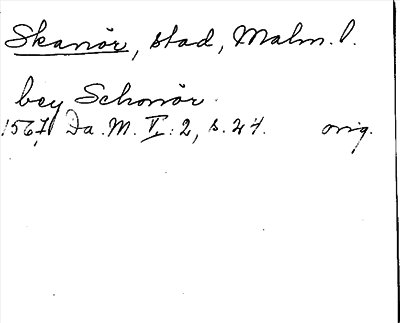 Skanör, stad, Malm. l.
bey Schonör.
1567 Da. M. V: 2, s. 24. orig.